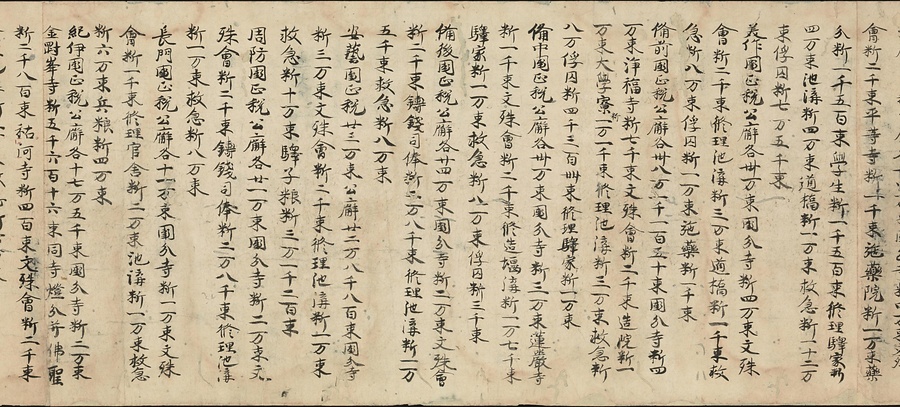 會料二千束平等寺料一千束施藥院料一万束藥
分料一千五百束學生料一千五百束修理驛家料
四万束池溝料四万束道橋料一万束救急料一十二万
束俘囚料七万五千束
美作國正税公廨各卅万束國分寺料四万束文殊
會料二千束修理池溝料三万束道橋料一千束救
急料八万束俘囚料一万束施藥料一千束
備前國正税公廨各卅八万一千一百五十束國分寺料四
万束淨福寺料七千束文殊會料二千束造院料一
万束大學寮料一万一千束修理池溝料三万束救急料
八万俘囚料四千三百卌束修理驛家料一万束
備中國正税公廨各卅万束國分寺料三万束蓮嚴寺
料一千束文殊會料二千束修造堰溝料一万七千束
驛家料一万束救急料八万束俘囚料三千束
備後國正税公廨各廿四万束國分寺料二万束文殊會
料二千束鑄錢司俸料二万八千束修理池溝料二万
五千束救急料八万束
安藝國正税廿三万束公廨廿二万八千八百束國分寺
料三万束文殊會料二千束修理池溝料三万束
救急料十万束驛子粮料三万一千二百束
周防國正税公廨各廿一万束國分寺料二万束文
殊會料二千束鑄錢司俸料二万八千束修理池溝
料一万束救急料八万束
長門國正税公廨各十一万束國分寺料一万束文殊
會料一千束修理官舍料二万束池溝料一万束救急
料六万束兵粮料四万束
紀伊國正税公廨各十七万五千束國分寺料二万束
金剛峯寺料五千六百十六束同寺燈分并佛聖
料二千八百束祐河寺料四百束文殊會料二千束